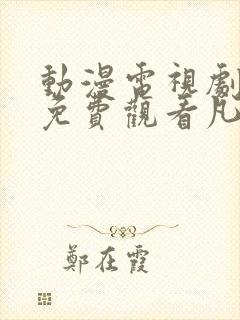 動漫電視劇
免費觀看凡
鄭在霞